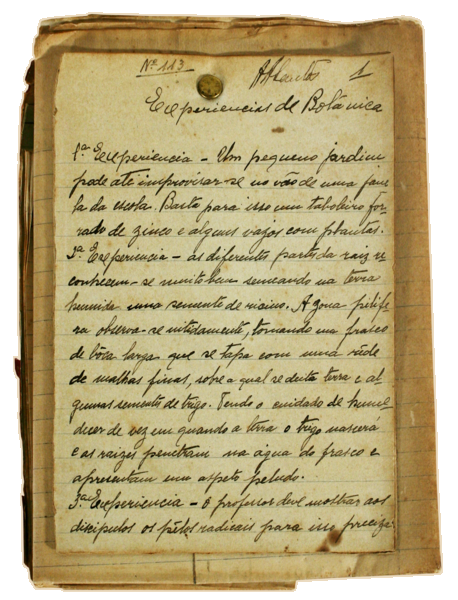 Nº 113
A Plantas 1
Experiencias de Botânica
1ª Experiencia - Um pequeno jardim
pode até improvisar-se no vão de uma jane
la da escola. Basta para isso um taboleiro for-
rado de zinco e alguns vasos com plantas.
2ª Experiencia - as diferentes partes da raiz re
conhecem-se muito bem semeando na terra
humida uma semente de ricino. A zona pelife
ra observa-se nitidamente, tomando um frasco
de bôca larga que se tapa com uma rêde
de malhas finas, sobre a qual se deita terra e al
gumas semente de trigo. Tendo o cuidado de hume
decer de vez em quando a terra o trigo nascera
e as raizes penetram na água do frasco e
apresentam um aspeto peludo.
3ª Experiencia - O professor deve mostrar aos
discipulos os pêlos radicais para isso preciza